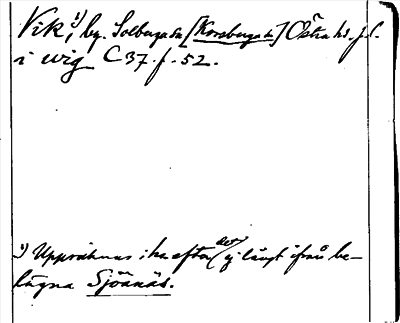 Vik,¹) by. Solberga sn [Korsberga sn] Östra hd. f.l.
i wig C 37. f. 52.
¹) Uppräknas i ha efter (det ej långt ifrån be-
lägna Sjöänäs.